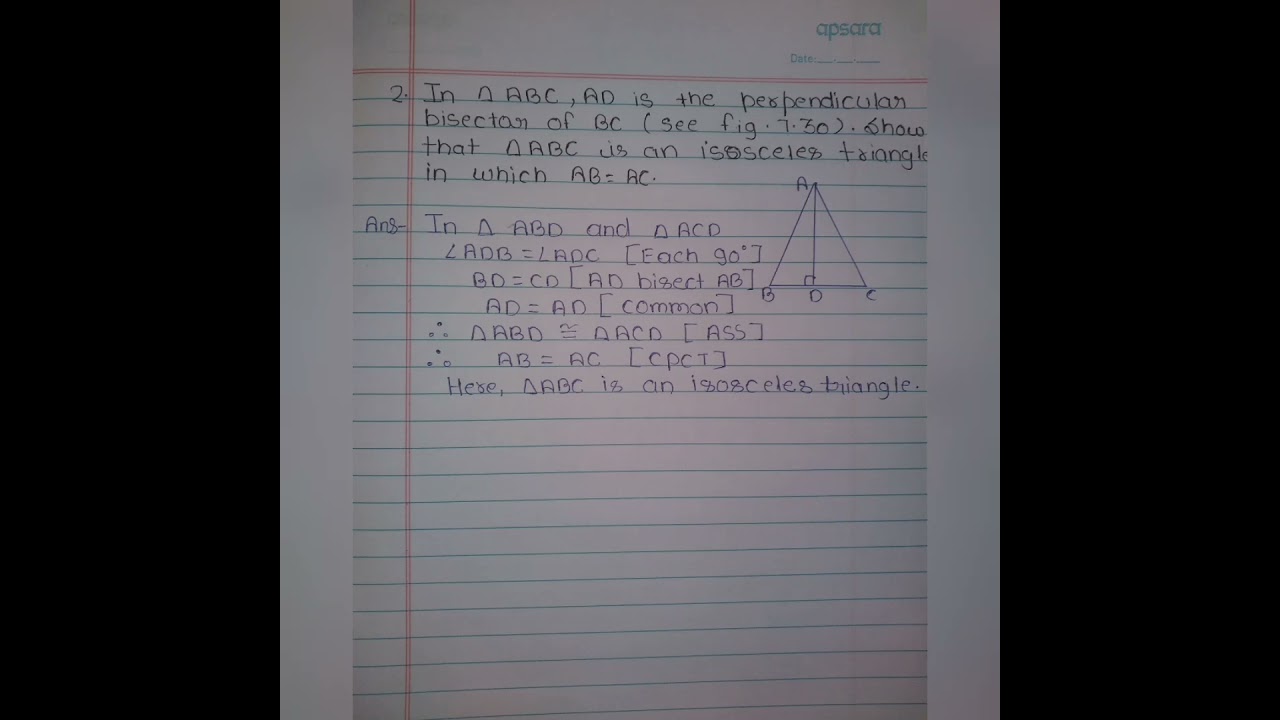 apsara
Date:__.__.__
2. In △ ABC, AD is the perpendicular
bisector of BC (see fig. 7.30). Show
that △ABC is an isosceles triangle
in which AB = AC.
A
Ans- In △ ABD and △ACD
∠ADB = ∠ADC [Each 90°]
BD = CD [AD bisect AB]
B D C
AD = AD [common]
∴ △ABD ≅ △ACD [ASS]
∴ AB = AC [CPCT]
Here, △ABC is an isosceles triangle.